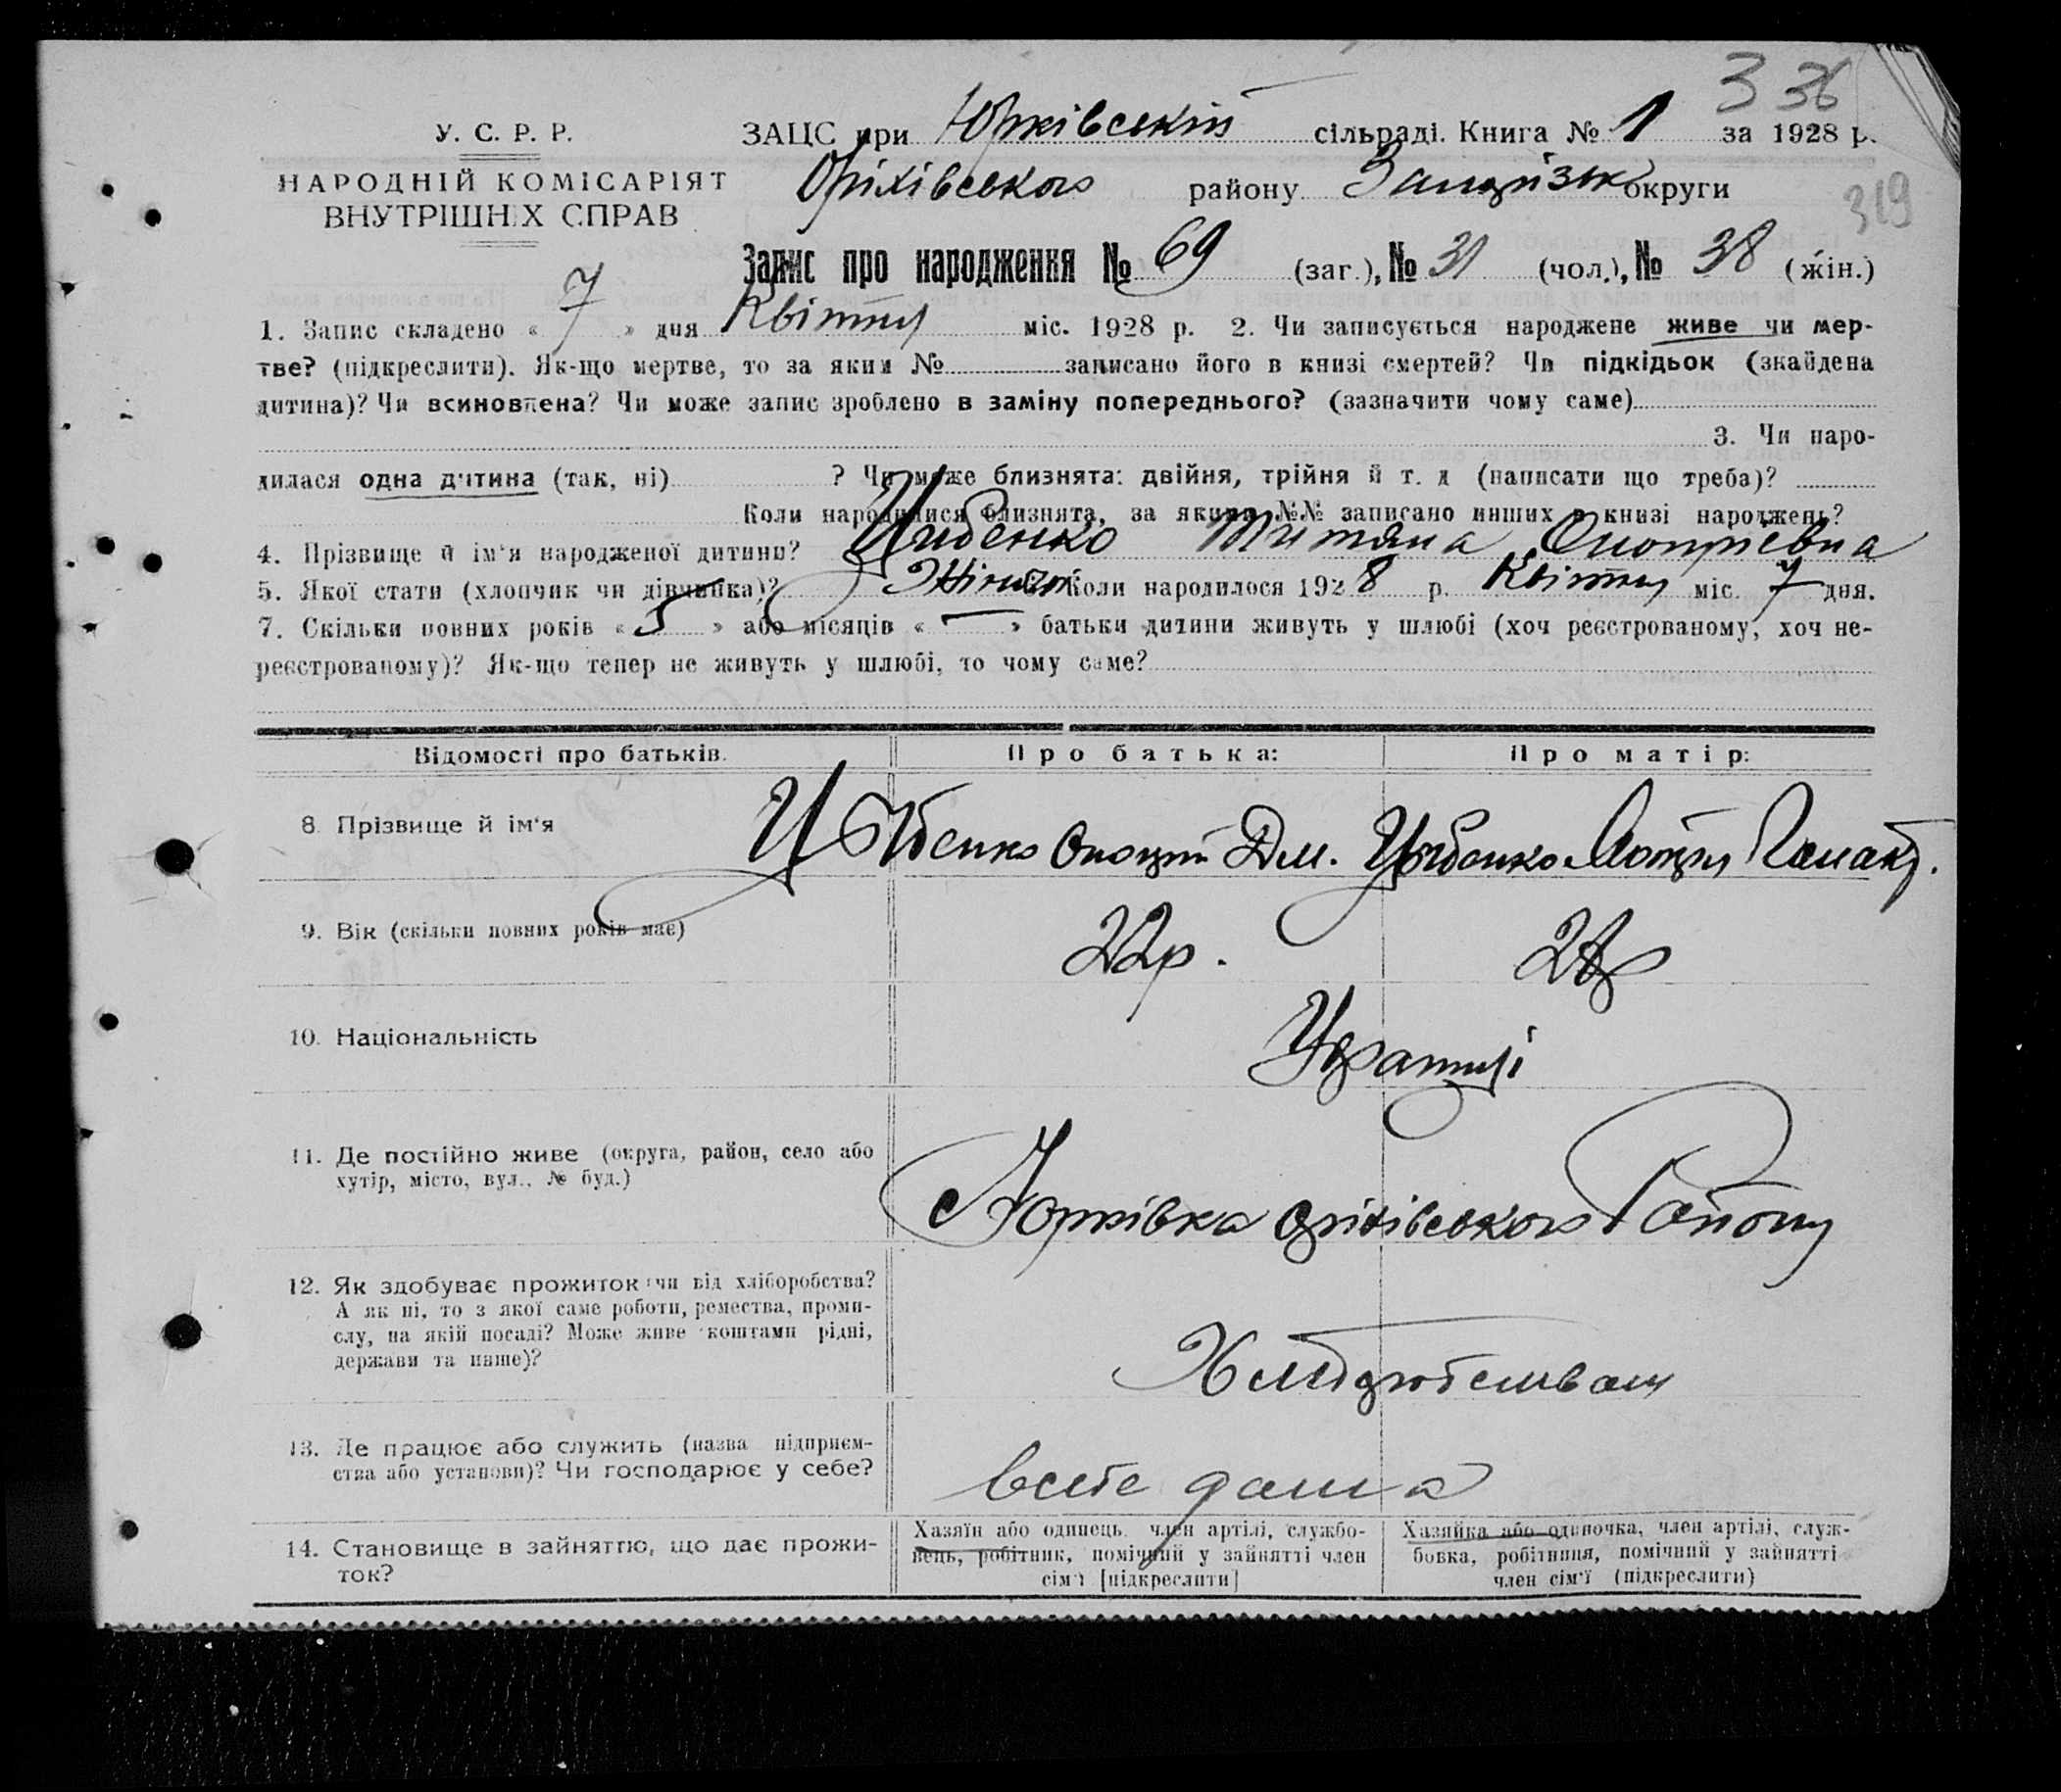 3 36
У. С. Р. Р.
ЗАЦС при Юрківській сільраді. Книга № 1 за 1928 р.
НАРОДНІЙ КОМІСАРІЯТ
ВНУТРІШНІХ СПРАВ
Оріхівського району Запоріськ округи
319
Запис про народження № 69 (заг.), № 31 (чол.), № 38 (жін.)
1. Запис складено « 7 » дня Квітня міс. 1928 р. 2. Чи записується народжене живе чи мер-
тве? (підкреслити). Як-що мертве, то за яким № записано його в книзі смертей? Чи підкідьок (знайдена
дитина)? Чи всиновлена? Чи може запис зроблено в заміну попереднього? (зазначити чому саме)
3. Чи наро-
дилася одна дитина (так, ні) ? Чи може близнята: двійня, трійня й т. д (написати що треба)?
Коли народилися близнята, за якими №№ записано инших в книзі народжень?
4. Прізвище й ім'я народженої дитини? Цибенко Титяна Оноприевна
5. Якої стати (хлопчик чи дівчинка)? Коли народилося 1928 р. Квітня міс. 7 дня.
7. Скільки повних років « 5 » або місяців « — » батьки дитини живуть у шлюбі (хоч реєстрованому, хоч не-
реєстрованому)? Як-що тепер не живуть у шлюбі, то чому саме?
Відомості про батьків. Про батька: Про матір:
8. Прізвище й ім'я Цибенко Дм. Цибенко
9. Вік (скільки повних років має) 22р.
10. Національність
11. Де постійно живе (округа, район, село або
хутір, місто, вул., № буд.)
с Юрківка Оріхівського Району
12. Як здобуває прожиток: чи від хліборобства?
А як ні, то з якої саме роботи, ремества, проми-
слу, на якій посаді? Може живе коштами рідні,
держави та инше)?
13. Де працює або служить (назва підприєм-
ства або установи)? Чи господарює у себе?
всебе дома
14. Становище в зайняттю, що дає прожи-
ток?
Хазяїн або одинець, член артілі, службо-
вець, робітник, помічний у зайнятті член
сім'ї [підкреслити]
Хазяйка або одиночка, член артілі, служ-
бовка, робітниця, помічний у зайнятті
член сім'ї (підкреслити)